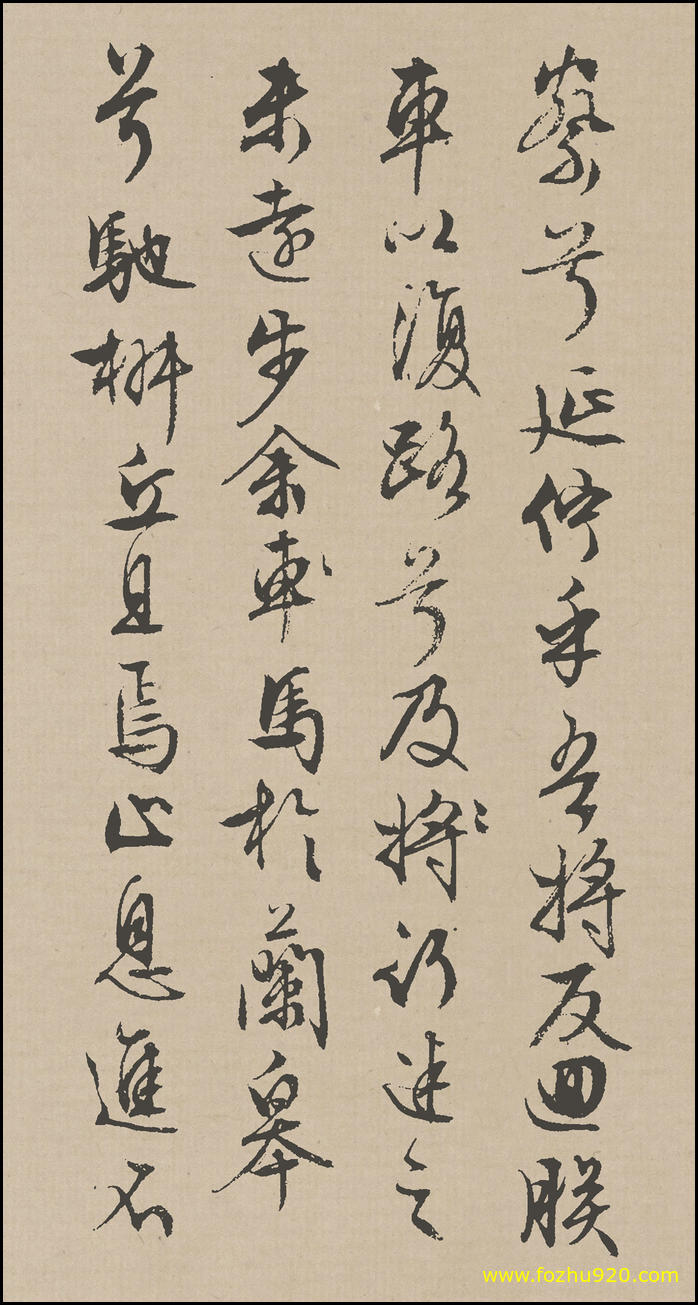 察兮延佇乎吾將反迴朕
車以復路兮及將行迷之
未遠步余車馬於蘭皋
兮馳椒丘且焉止息進不
www.fozhu920.com